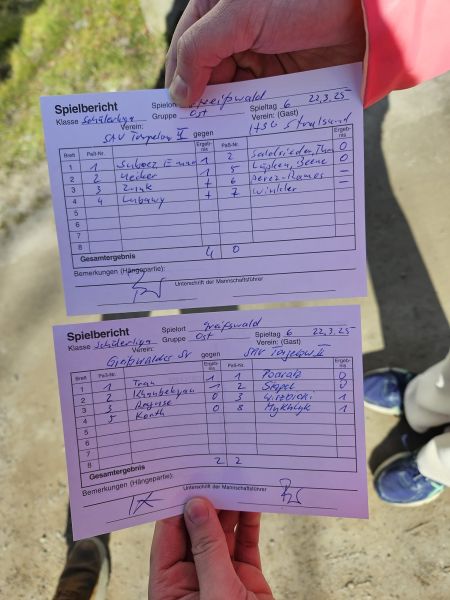 Spielbericht Spielort Greifswald Spieltag 6 22.3.25
Klasse Schülerliga Gruppe Ost
Verein: Verein: (Gast)
SAV Torgelow II gegen 1 TSG Stralsund
Brett Paß-Nr. Ergebnis Paß-Nr. Ergebnis
1 1 1 2 0
2 2 1 5 Beene 0
3 3 + 6 Perez-Ramos –
4 4 Lubawy + 7 Winkler –
5
6
7
8
Gesamtergebnis 4 0
Bemerkungen (Hängepartie):
Unterschrift der Mannschaftsführer
Spielbericht Spielort Greifswald Spieltag 6 22.3.25
Klasse Schülerliga Gruppe Ost
Verein: Verein: (Gast)
Greifswalder SV gegen SAV Torgelow II
Brett Paß-Nr. Ergebnis Paß-Nr. Ergebnis
1 1 1 1 0
2 2 1 2 Stapel 0
3 3 0 3 1
4 5 Korth 0 8 Mykhlyk 1
5
6
7
8
Gesamtergebnis 2 2
Bemerkungen (Hängepartie):
Unterschrift der Mannschaftsführer